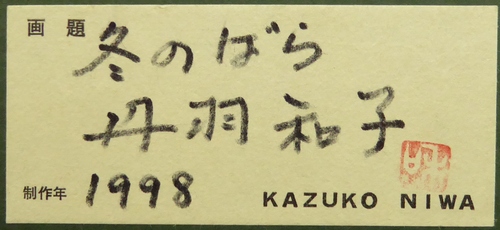 画題 冬のばら
丹羽和子
制作年 1998 KAZUKO NIWA